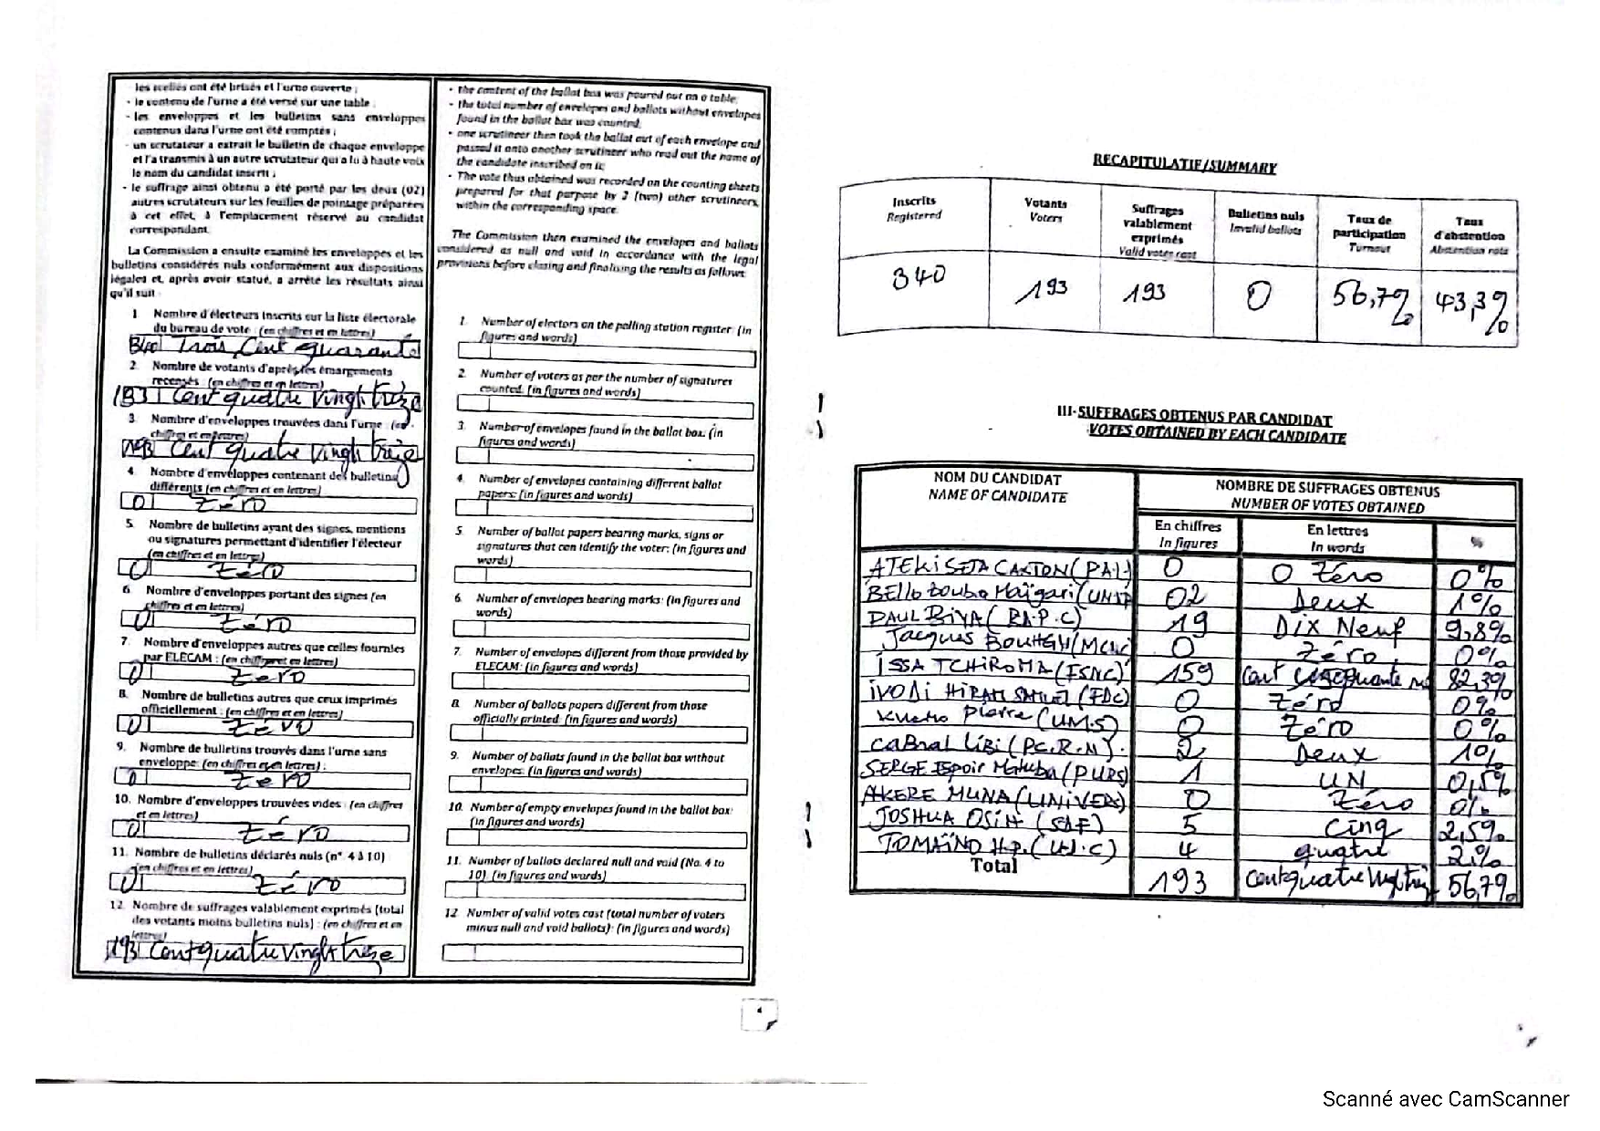 - les scellés ont été brisés et l'urne ouverte ;
- le contenu de l'urne a été versé sur une table ;
- les enveloppes et les bulletins sans enveloppes
contenus dans l'urne ont été comptés ;
- un scrutateur a extrait le bulletin de chaque enveloppe
et l'a transmis à un autre scrutateur qui a lu à haute voix
le nom du candidat inscrit ;
- le suffrage ainsi obtenu a été porté par les deux (02)
autres scrutateurs sur les feuilles de pointage préparées
à cet effet, à l'emplacement réservé au candidat
correspondant.
La Commission a ensuite examiné les enveloppes et les
bulletins considérés nuls conformément aux dispositions
légales et, après avoir statué, a arrêté les résultats ainsi
qu'il suit
1. Nombre d'électeurs inscrits sur la liste électorale
du bureau de vote : (en chiffres et en lettres)
340 Trois Cent quarante
2. Nombre de votants d'après les émargements
recensés : (en chiffres et en lettres)
193 Cent quatre vingt treize
3. Nombre d'enveloppes trouvées dans l'urne : (en
chiffres et en lettres)
193 Cent quatre vingt treize
4. Nombre d'enveloppes contenant des bulletins
différents (en chiffres et en lettres)
0 Zéro
5. Nombre de bulletins ayant des signes, mentions
ou signatures permettant d'identifier l'électeur
(en chiffres et en lettres)
0 Zéro
6. Nombre d'enveloppes portant des signes (en
chiffres et en lettres)
0 Zéro
7. Nombre d'enveloppes autres que celles fournies
par ELECAM : (en chiffres et en lettres)
0 Zero
8. Nombre de bulletins autres que ceux imprimés
officiellement : (en chiffres et en lettres)
0 Zéro
9. Nombre de bulletins trouvés dans l'urne sans
enveloppe: (en chiffres et en lettres) :
0 Zero
10. Nombre d'enveloppes trouvées vides : (en chiffres
et en lettres)
0 Zéro
11. Nombre de bulletins déclarés nuls (n° 4 à 10)
(en chiffres et en lettres)
0 Zéro
12. Nombre de suffrages valablement exprimés (total
des votants moins bulletins nuls) : (en chiffres et en
lettres)
193 Cent quatre vingt treize
• the content of the ballot box was poured out on a table;
• the total number of envelopes and ballots without envelopes
found in the ballot box was counted;
• one scrutineer then took the ballot out of each envelope and
passed it onto another scrutineer who read out the name of
the candidate inscribed on it;
• The vote thus obtained was recorded on the counting sheets
prepared for that purpose by 2 (two) other scrutineers,
within the corresponding space.
The Commission then examined the envelopes and ballots
considered as null and void in accordance with the legal
provisions before closing and finalising the results as follows:
1. Number of electors on the polling station register: (in
figures and words)
2. Number of voters as per the number of signatures
counted: (in figures and words)
3. Number of envelopes found in the ballot box: (in
figures and words)
4. Number of envelopes containing different ballot
papers: (in figures and words)
5. Number of ballot papers bearing marks, signs or
signatures that can identify the voter: (in figures and
words)
6. Number of envelopes bearing marks: (in figures and
words)
7. Number of envelopes different from those provided by
ELECAM: (in figures and words)
8. Number of ballots papers different from those
officially printed: (in figures and words)
9. Number of ballots found in the ballot box without
envelopes: (in figures and words)
10. Number of empty envelopes found in the ballot box:
(in figures and words)
11. Number of ballots declared null and void (No. 4 to
10) (in figures and words)
12. Number of valid votes cast (total number of voters
minus null and void ballots): (in figures and words)
4
RECAPITULATIF/SUMMARY
Inscrits Registered | Votants Voters | Suffrages valablement exprimés Valid votes cast | Bulletins nuls Invalid ballots | Taux de participation Turnout | Taux d'abstention Abstention rate
340 | 193 | 193 | 0 | 56,7% | 43,3%
III-SUFFRAGES OBTENUS PAR CANDIDAT
VOTES OBTAINED BY EACH CANDIDATE
NOM DU CANDIDAT NAME OF CANDIDATE | NOMBRE DE SUFFRAGES OBTENUS NUMBER OF VOTES OBTAINED
En chiffres In figures | En lettres In words | %
ATEKI SETA CAXTON (PAL) 0 0 Zéro 0%
Bello Bouba Maïgari (UNDP 02 Deux 1%
PAUL BIYA ( R.D.P.C) 19 Dix Neuf 9,8%
Jacques BOUHGH (MCNC 0 Zéro 0%
ISSA TCHIROMA (FSNC) 159 Cent cinquante 82,3%
IYODI HIRAM SAMUEL (FDC) 0 Zéro 0%
Kwemo Pierre (UMS) 0 Zéro 0%
CABRAL LIBI (P.C.R.N). 2 Deux 1%
SERGE Espoir Matomba (PURS) 1 UN 0,5%
AKERE MUNA (UNIVERS) 0 Zéro 0%
JOSHUA OSIH (SDF) 5 Cinq 2,5%
TOMAÏNO H.P. (UN.C) 4 quatre 2%
Total 193 Cent quatre vingt 56,7%
Scanné avec CamScanner